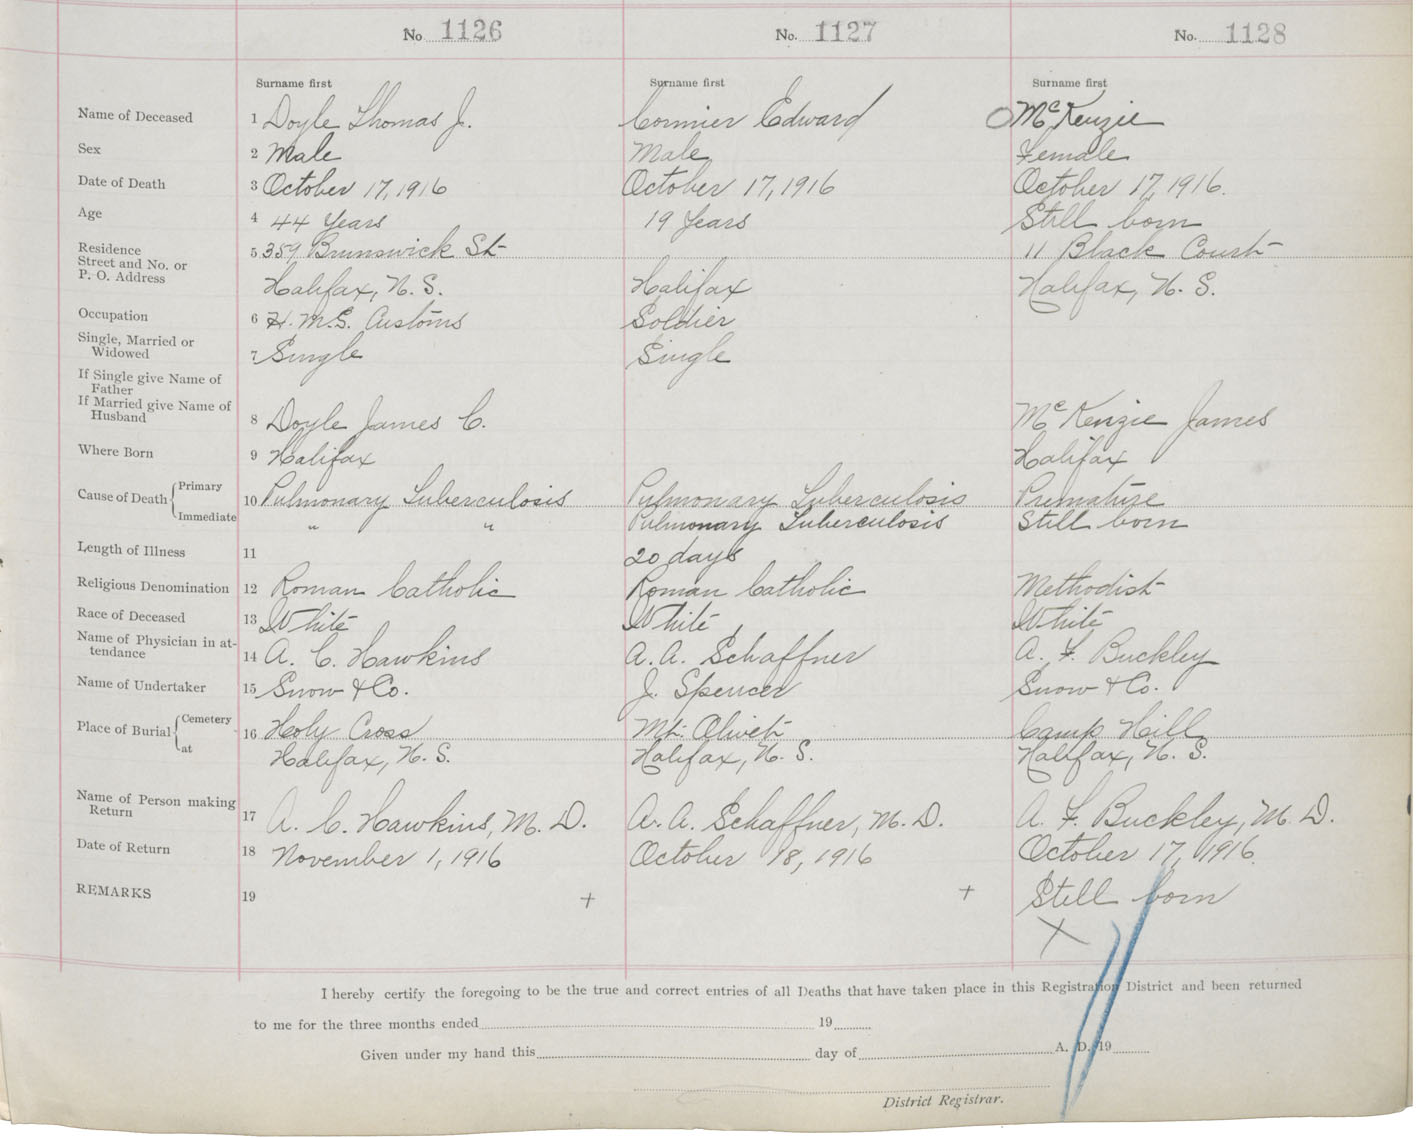 No 1126 No. 1127 No. 1128
Surname first Surname first Surname first
Name of Deceased 1 Doyle Thomas J. Cormier Edward McKenzie
Sex 2 Male Male Female
Date of Death 3 October 17, 1916 October 17, 1916 October 17, 1916.
Age 4 44 Years 19 Years Still born
Residence 5 359 Brunswick St 11 Black Court
Street and No. or
P. O. Address Halifax, N. S. Halifax Halifax, N. S.
Occupation 6 H. M. S. Customs Soldier
Single, Married or
Widowed 7 Single Single
If Single give Name of
Father
If Married give Name of
Husband 8 Doyle James C. McKenzie James
Where Born 9 Halifax Halifax
Cause of Death Primary 10 Pulmonary Tuberculosis Pulmonary Tuberculosis Premature
Immediate " " Pulmonary Tuberculosis Still born
Length of Illness 11 20 days
Religious Denomination 12 Roman Catholic Roman Catholic Methodist
Race of Deceased 13 White White White
Name of Physician in at-
tendance 14 A. C. Hawkins A. A. Schaffner A. F. Buckley
Name of Undertaker 15 Snow & Co. J. Spencer Snow & Co.
Place of Burial Cemetery 16 Holy Cross Mt. Olivet Camp Hill
at Halifax, N. S. Halifax, N. S. Halifax, N. S.
Name of Person making
Return 17 A. C. Hawkins, M. D. A. A. Schaffner, M. D. A. F. Buckley, M. D.
Date of Return 18 November 1, 1916 October 18, 1916 October 17, 1916.
REMARKS 19 + + Still born
X
I hereby certify the foregoing to be the true and correct entries of all Deaths that have taken place in this Registration District and been returned
to me for the three months ended 19
Given under my hand this day of A. D. 19
District Registrar.